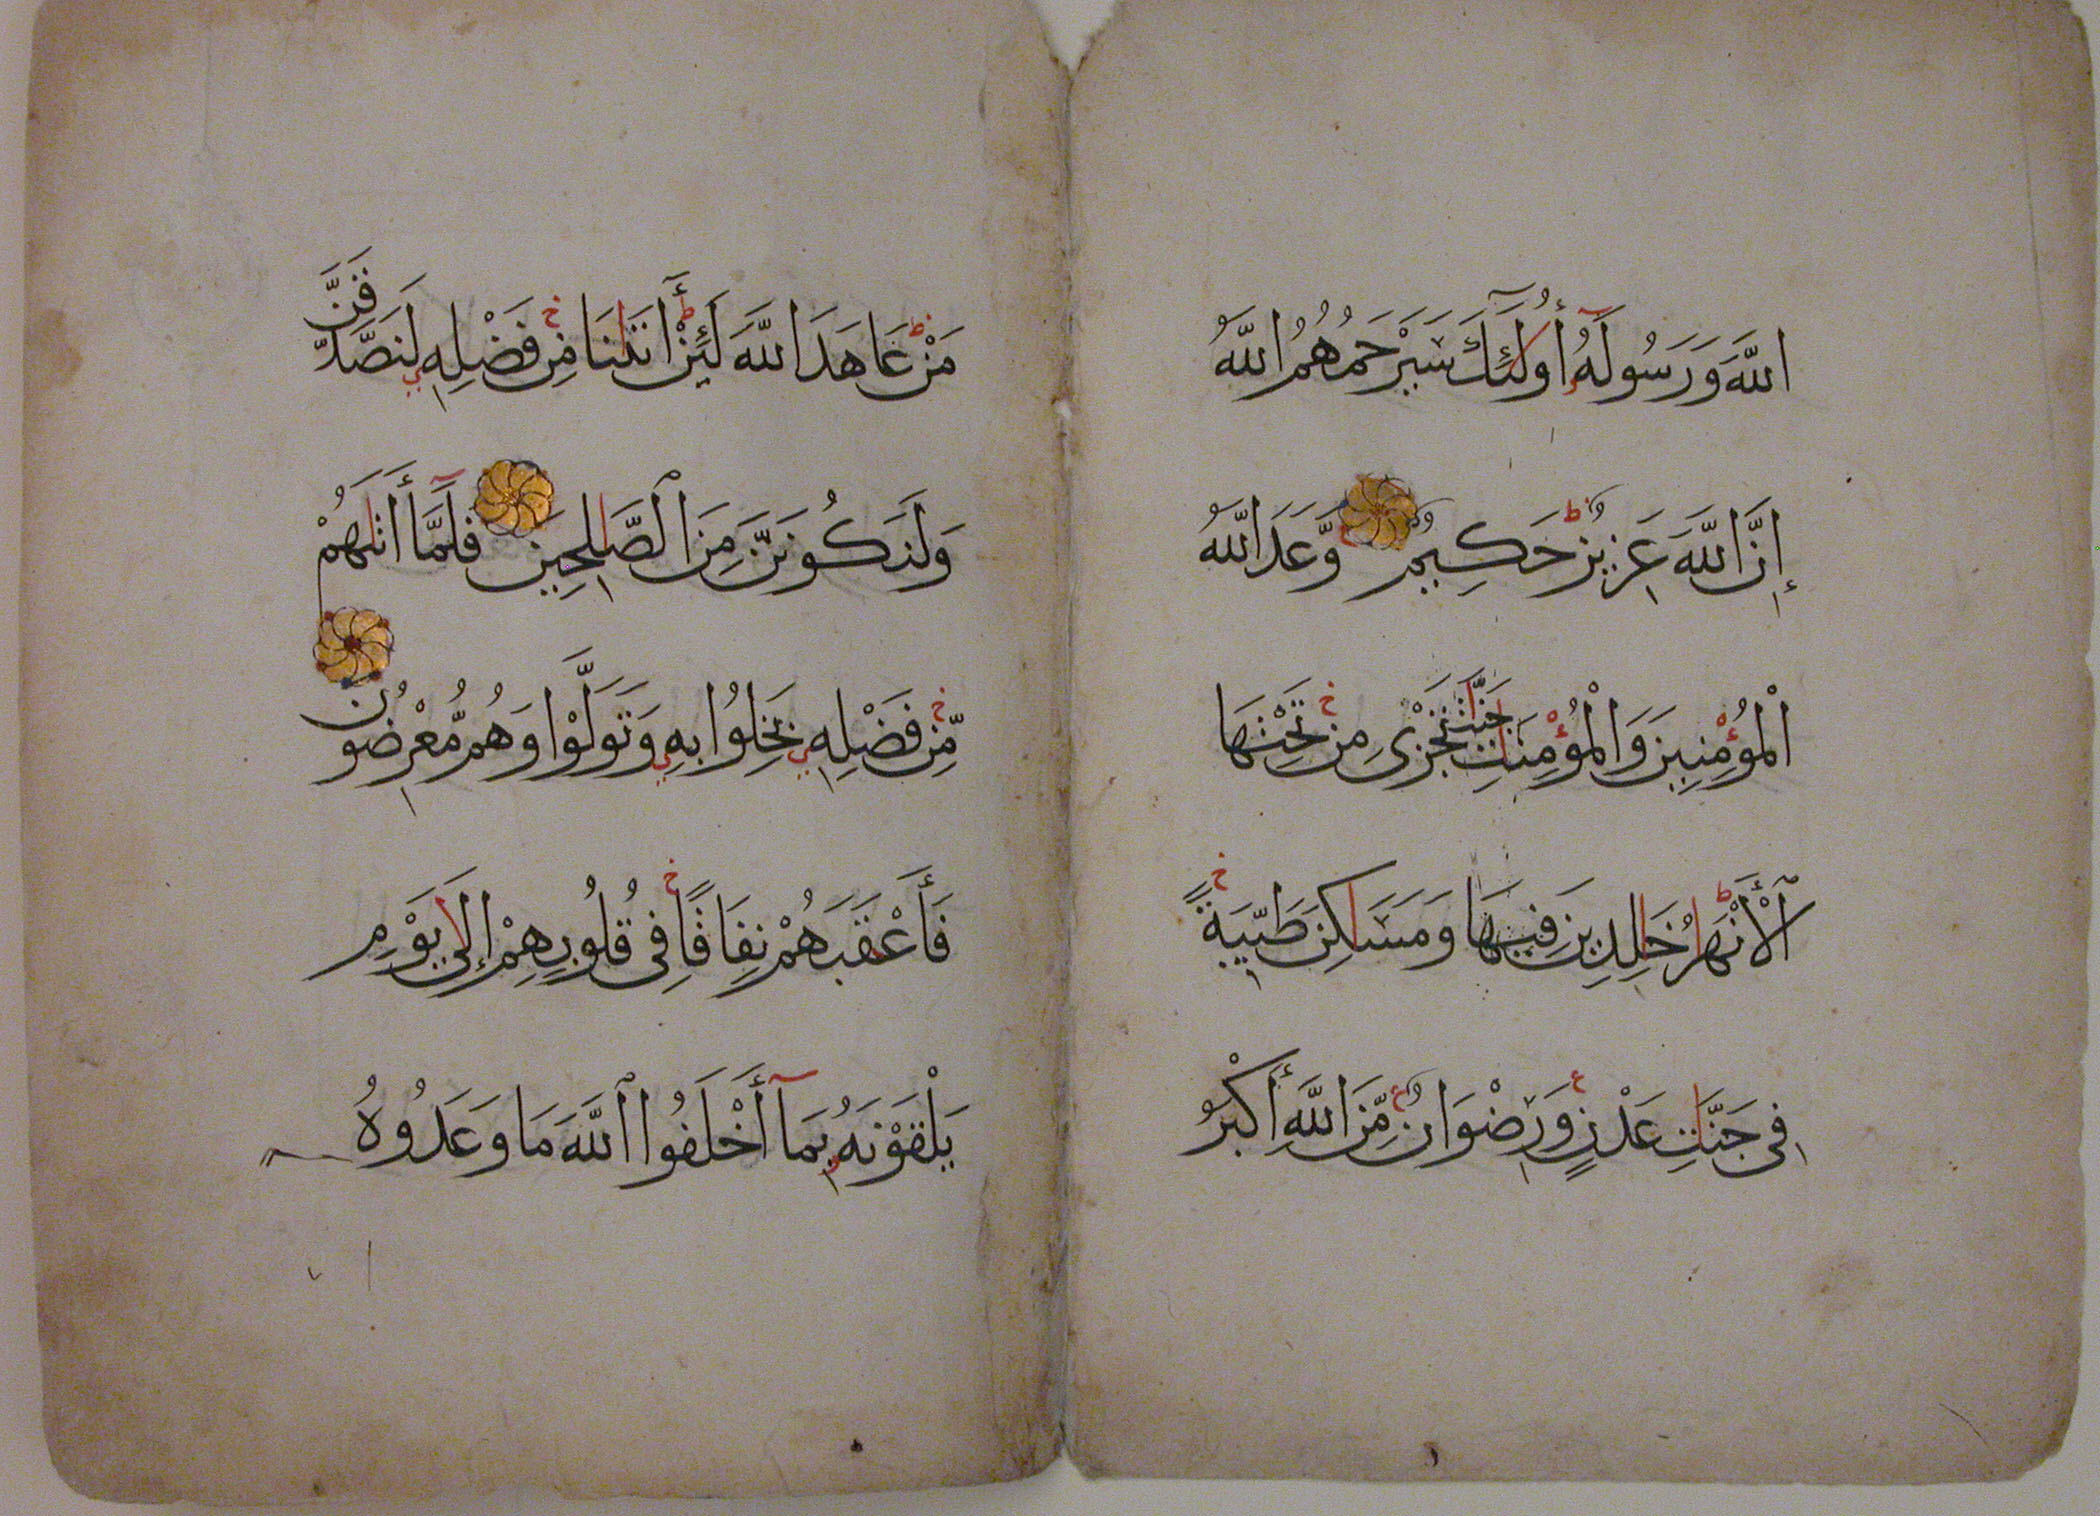 اللَّهَ وَرَسُولَهُ أُولَٰئِكَ سَيَرْحَمُهُمُ اللَّهُ
إِنَّ اللَّهَ عَزِيزٌ حَكِيمٌ وَّعَدَ اللَّهُ
الْمُؤْمِنِينَ وَالْمُؤْمِنَٰتِ جَنَّٰتٍ تَجْرِى مِن تَحْتِهَا
ٱلْأَنْهَٰرُ خَٰلِدِينَ فِيهَا وَمَسَٰكِنَ طَيِّبَةً
فِى جَنَّٰتِ عَدْنٍ وَرِضْوَانٌ مِّنَ اللَّهِ أَكْبَرُ
مَنْ عَاهَدَ اللَّهَ لَئِنْ اٰتَىٰنَا مِن فَضْلِهِ لَنَصَّدَّقَنَّ
وَلَنَكُونَنَّ مِنَ ٱلصَّٰلِحِينَ فَلَمَّا أَتَىٰهُمْ
مِّن فَضْلِهِ بَخِلُوا بِهِ وَتَوَلَّوْا وَهُم مُّعْرِضُونَ
فَأَعْقَبَهُمْ نِفَاقًا فِى قُلُوبِهِمْ إِلَىٰ يَوْمِ
يَلْقَوْنَهُ بِمَا أَخْلَفُوا ٱللَّهَ مَا وَعَدُوهُ